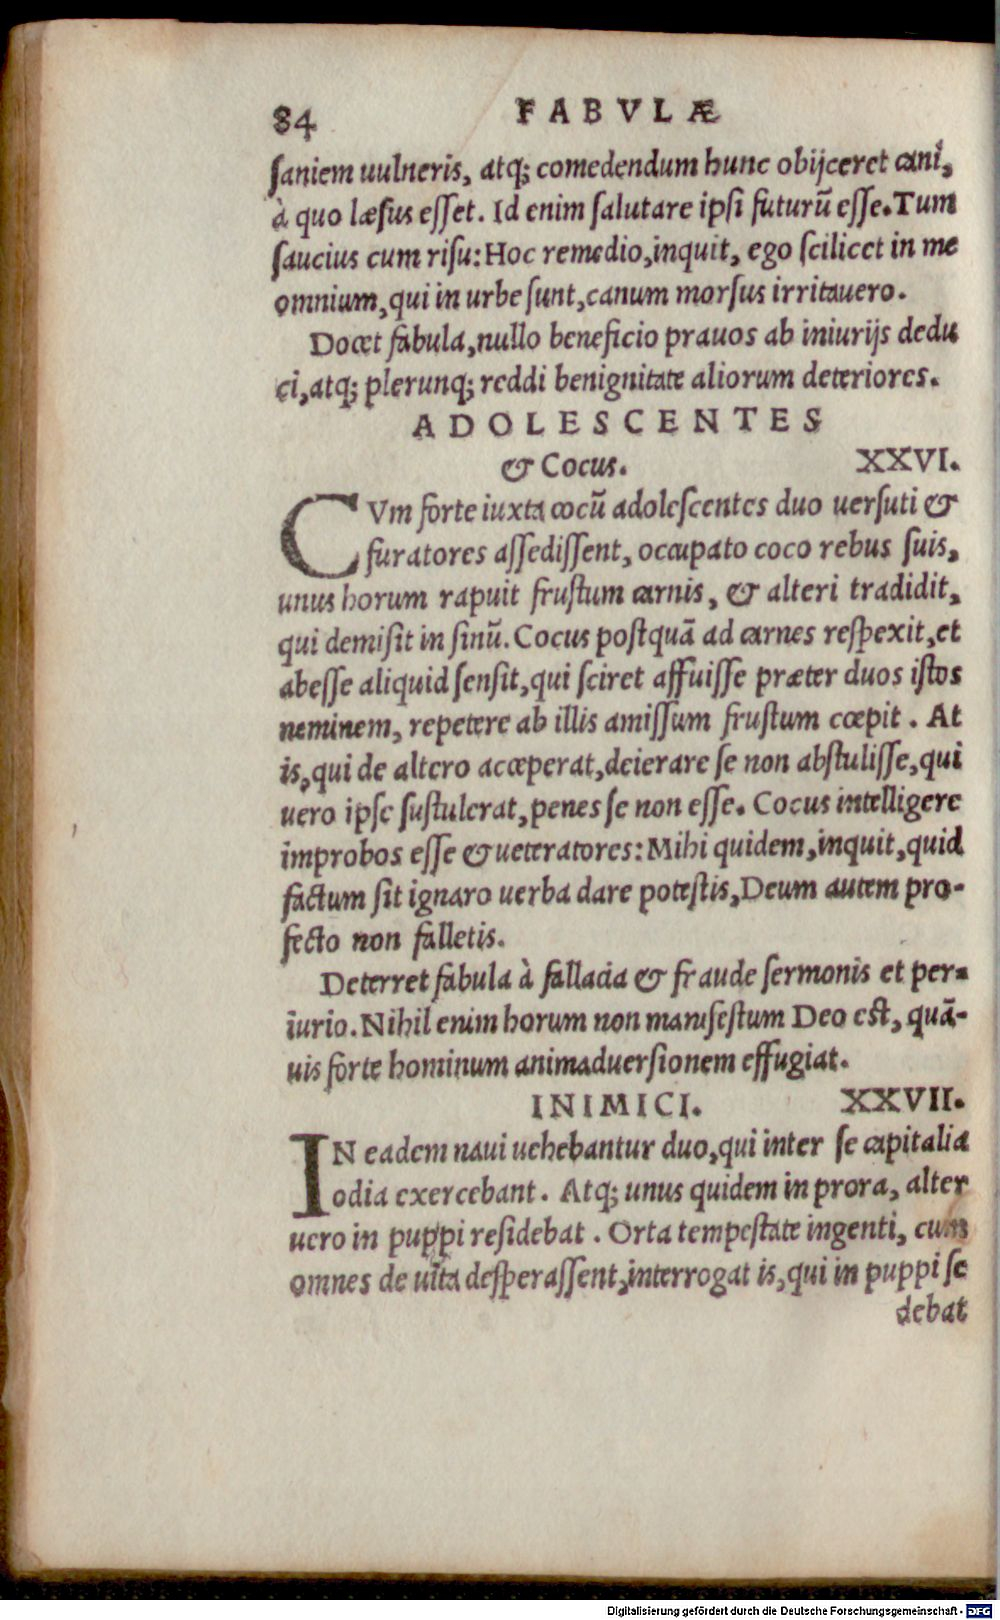 84 FABVLÆ
saniem uulneris, atq; comedendum hunc obijceret cani,
à quo læsus esset. Id enim salutare ipsi futurũ esse. Tum
saucius cum risu: Hoc remedio, inquit, ego scilicet in me
omnium, qui in urbe sunt, canum morsus irritauero.
Docet fabula, nullo beneficio prauos ab iniurijs dedu
ci, atq; plerunq; reddi benignitate aliorum deteriores.
ADOLESCENTES
& Cocus. XXVI.
CVm forte iuxta cocũ adolescentes duo uersuti &
furatores assedissent, occupato coco rebus suis,
unus horum rapuit frustum carnis, & alteri tradidit,
qui demisit in sinũ. Cocus postquã ad carnes respexit, et
abesse aliquid sensit, qui sciret affuisse præter duos istos
neminem, repetere ab illis amissum frustum cœpit. At
is, qui de altero acceperat, deierare se non abstulisse, qui
uero ipse sustulerat, penes se non esse. Cocus intelligere
improbos esse & ueteratores: Mihi quidem, inquit, quid
factum sit ignaro uerba dare potestis, Deum autem pro-
fecto non falletis.
Deterret fabula à fallacia & fraude sermonis et per-
iurio. Nihil enim horum non manifestum Deo est, quã-
uis forte hominum animaduersionem effugiat.
INIMICI. XXVII.
IN eadem naui uehebantur duo, qui inter se capitalia
odia exercebant. Atq; unus quidem in prora, alter
uero in puppi residebat. Orta tempestate ingenti, cum
omnes de uita desperassent, interrogat is, qui in puppi se
debat
Digitalisierung gefördert durch die Deutsche Forschungsgemeinschaft - DFG